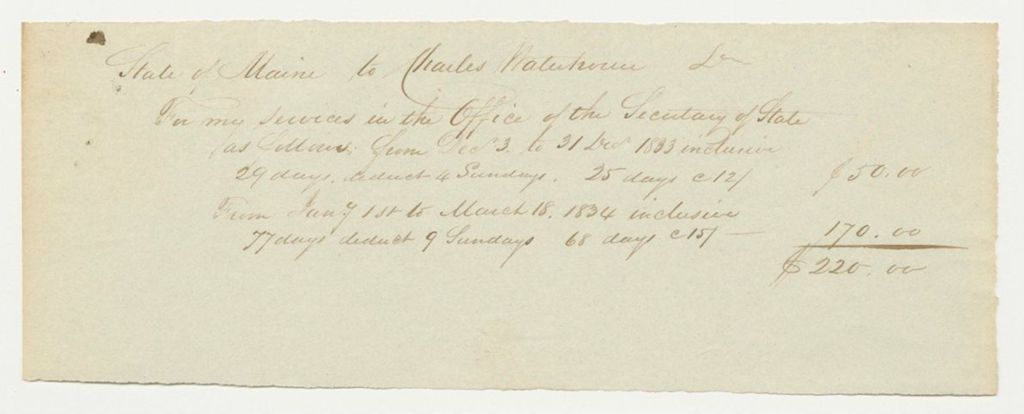 State of Maine to Charles Waterhouse Dr
For my services in the Office of the Secretary of State
as follows: from Decr 3. to 31 Decr 1833 inclusive
29 days, deduct 4 Sundays. 25 days @ 12/ $50.00
From Jany 1st to March 18. 1834 inclusive
77 days deduct 9 Sundays 68 days @ 15/ — 170.00
$220.00